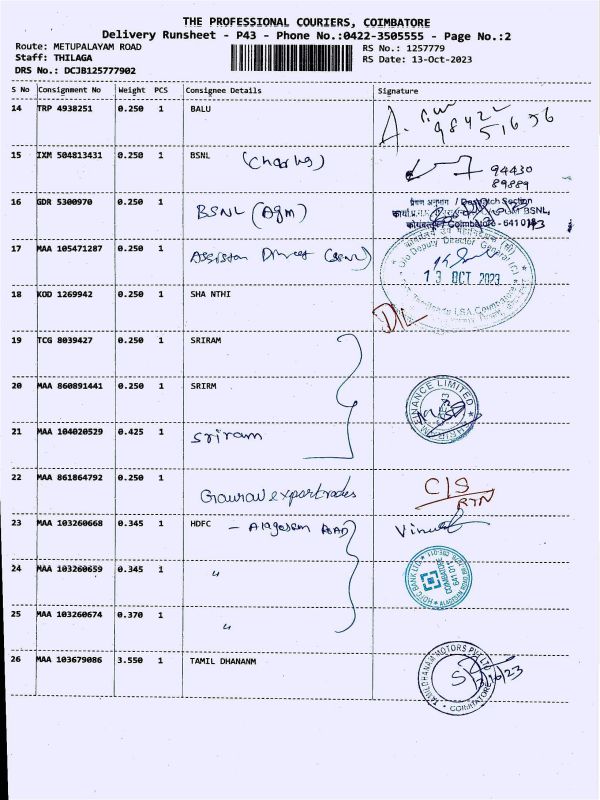 THE PROFESSIONAL COURIERS, COIMBATORE
Delivery Runsheet - P43 - Phone No.:0422-3505555 - Page No.:2
Route: METUPALAYAM ROAD RS No.: 1257779
Staff: THILAGA RS Date: 13-Oct-2023
DRS No.: DCJB125777902
S No Consignment No Weight PCS Consignee Details Signature
14 TRP 4938251 0.250 1 BALU
98422
51656
15 IXM 504813431 0.250 1 BSNL (Charles) 94430
89889
16 GDR 5300970 0.250 1 BSNL (Agm) प्रेषण अनुभाग / Despatch Section
BSNL,
Coimbatore - 641 018
17 MAA 105471287 0.250 1 Assistan Direct (BSNL) O/o Deputy Director General
13 OCT 2023
LSA, Coimbatore
18 KOD 1269942 0.250 1 SHA NTHI DL
19 TCG 8039427 0.250 1 SRIRAM
20 MAA 860891441 0.250 1 SRIRM FINANCE LIMITED
21 MAA 104020529 0.425 1 Sriram
22 MAA 861864792 0.250 1 Gaurav exportrades C/S
RTN
23 MAA 103260668 0.345 1 HDFC - Alagesan ROAD
24 MAA 103260659 0.345 1 〃 HDFC BANK LTD.
COIMBATORE
641 011
25 MAA 103260674 0.370 1 〃
26 MAA 103679086 3.550 1 TAMIL DHANANM TAMILDHANAM MOTORS PVT LTD
COIMBATORE